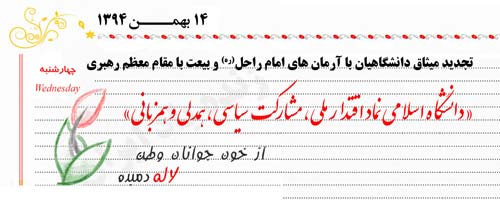 ۱۴ بهمن ۱۳۹۴
تجدید میثاق دانشگاهیان با آرمان های امام راحل(ره) و بیعت با مقام معظم رهبری
چهارشنبه
Wednesday
«دانشگاه اسلامی نماد اقتدار ملی، مشارکت سیاسی، همدلی و همزبانی»
از خون جوانان وطن
لاله دمیده